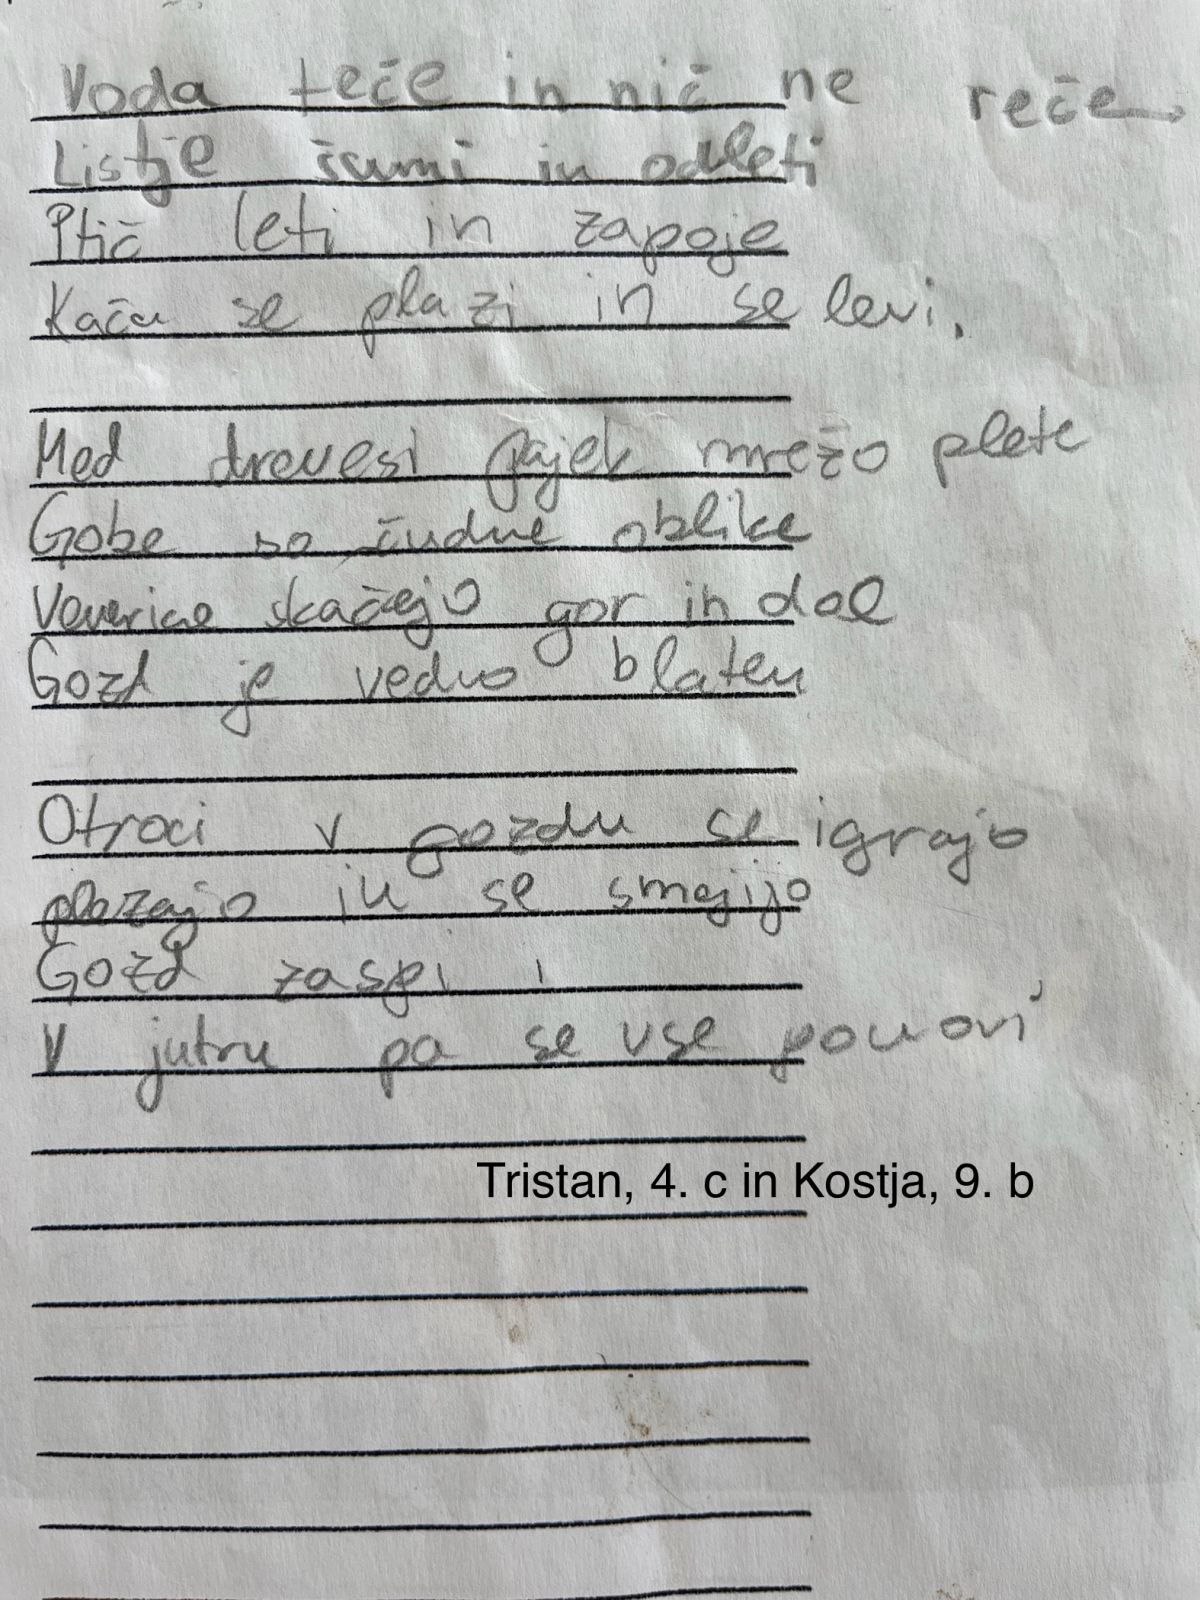 Voda teče in nič ne reče
Listje šumi in odleti
Ptič leti in zapoje
Kača se plazi in se levi.
Med drevesi pajek mrežo plete
Gobe so čudne oblike
Veverice skačejo gor in dol
Gozd je vedno blaten
Otroci v gozdu se igrajo
plezajo in se smejijo
Gozd zaspi
V jutru pa se vse ponovi
Tristan, 4. c in Kostja, 9. b